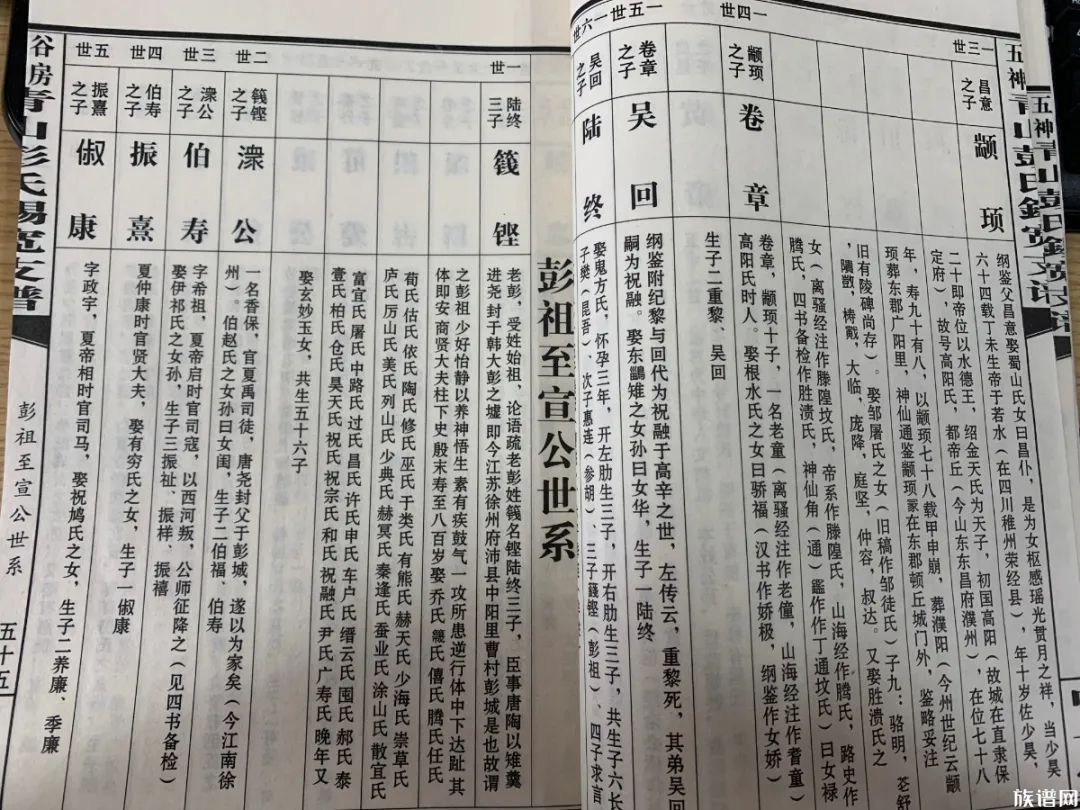 一三世
昌意之子
颛顼
纲鉴父昌意娶蜀山氏女曰昌仆，是为女枢感瑶光贯月之祥，当少昊
六十四载丁未生帝于若水（在四川稚州荣经县），年十岁佐少昊，
二十即帝位以水德王，绍金天氏为天子，初国高阳（故城在直隶保
定府），故号高阳氏，都帝丘（今山东东昌府濮州），在位七十八
年，寿九十有八，以颛顼七十八载甲申崩，葬濮阳（今州世纪云颛
顼葬东郡广阳里，神仙通鉴颛顼冢在东郡顿丘城门外，鉴略妥注
旧有陵碑尚存）。娶邹屠氏之女（旧稿作邹徒氏）子九：骆明，苍舒
，隤敳，梼戭，大临，庞降，庭坚，仲容，叔达。又娶胜溃氏之
女（离骚经注作滕隍坟氏，帝系作滕隍氏，山海经作腾氏，路史作
腾氏，四书备检作胜溃氏，神仙角（通）鑑作作丁通坟氏）曰女禄
一四世
颛顼之子
卷章
卷章，颛顼十子，一名老童（离骚经注作老僮，山海经注作耆童）
高阳氏时人。娶根水氏之女曰骄福（汉书作娇极，纲鉴作女娇）
生子二重黎、吴回
一五世
卷章之子
吴回
纲鉴附纪黎与回代为祝融于高辛之世，左传云，重黎死，其弟吴回
嗣为祝融。娶东鶅雉之女孙曰女华，生子一陆终
一六世
吴回之子
陆终
娶鬼方氏，怀孕三年，开左肋生三子，开右肋生三子，共生子六长
子樊（昆吾）、次子惠连（参胡）、三子籛铿（彭祖）、四子求言
彭祖至宣公世系
一世
陆终三子
篯铿
老彭，受姓始祖，论语疏老彭姓篯名铿陆终三子，臣事唐陶以雉羹
进尧封于韩大彭之墟即今江苏徐州府沛县中阳里曹村彭城是也故谓
之彭祖少好恬静以养神悟生素有疾鼓气一攻所患逆行体中下达趾其
体即安商贤大夫柱下史殷末寿至八百岁娶乔氏篯氏僖氏腾氏任氏
荀氏估氏依氏陶氏修氏巫氏于类氏有熊氏赫天氏少海氏崇草氏
庐氏厉山氏美氏列山氏少典氏赫冥氏秦逢氏蚕业氏涂山氏散宜氏
富宜氏屠氏中路氏过氏昌氏许氏申氏车卢氏缙云氏囤氏郝氏泰
壹氏柏氏仓氏昊天氏祝氏祝宗氏和氏祝融氏尹氏广寿氏晚年又
娶玄妙玉女，共生五十六子
二世
篯铿之子
澋公
一名香保，官夏禹司徒，唐尧封父于彭城，遂以为家矣（今江南徐
州）。伯赵氏之女孙曰女闺，生子二伯福、伯寿
三世
澋公之子
伯寿
字希祖，夏帝启时官司寇，以西河叛，公师征降之（见四书备检）
娶伊祁氏之女孙，生子三振祉、振样、振禧
四世
伯寿之子
振熹
夏仲康时官贤大夫，娶有穷氏之女，生子一俶康
五世
振熹之子
俶康
字政宇，夏帝相时官司马，娶祝鸠氏之女，生子二养廉、季廉
彭祖至宣公世系
五十五
族谱网